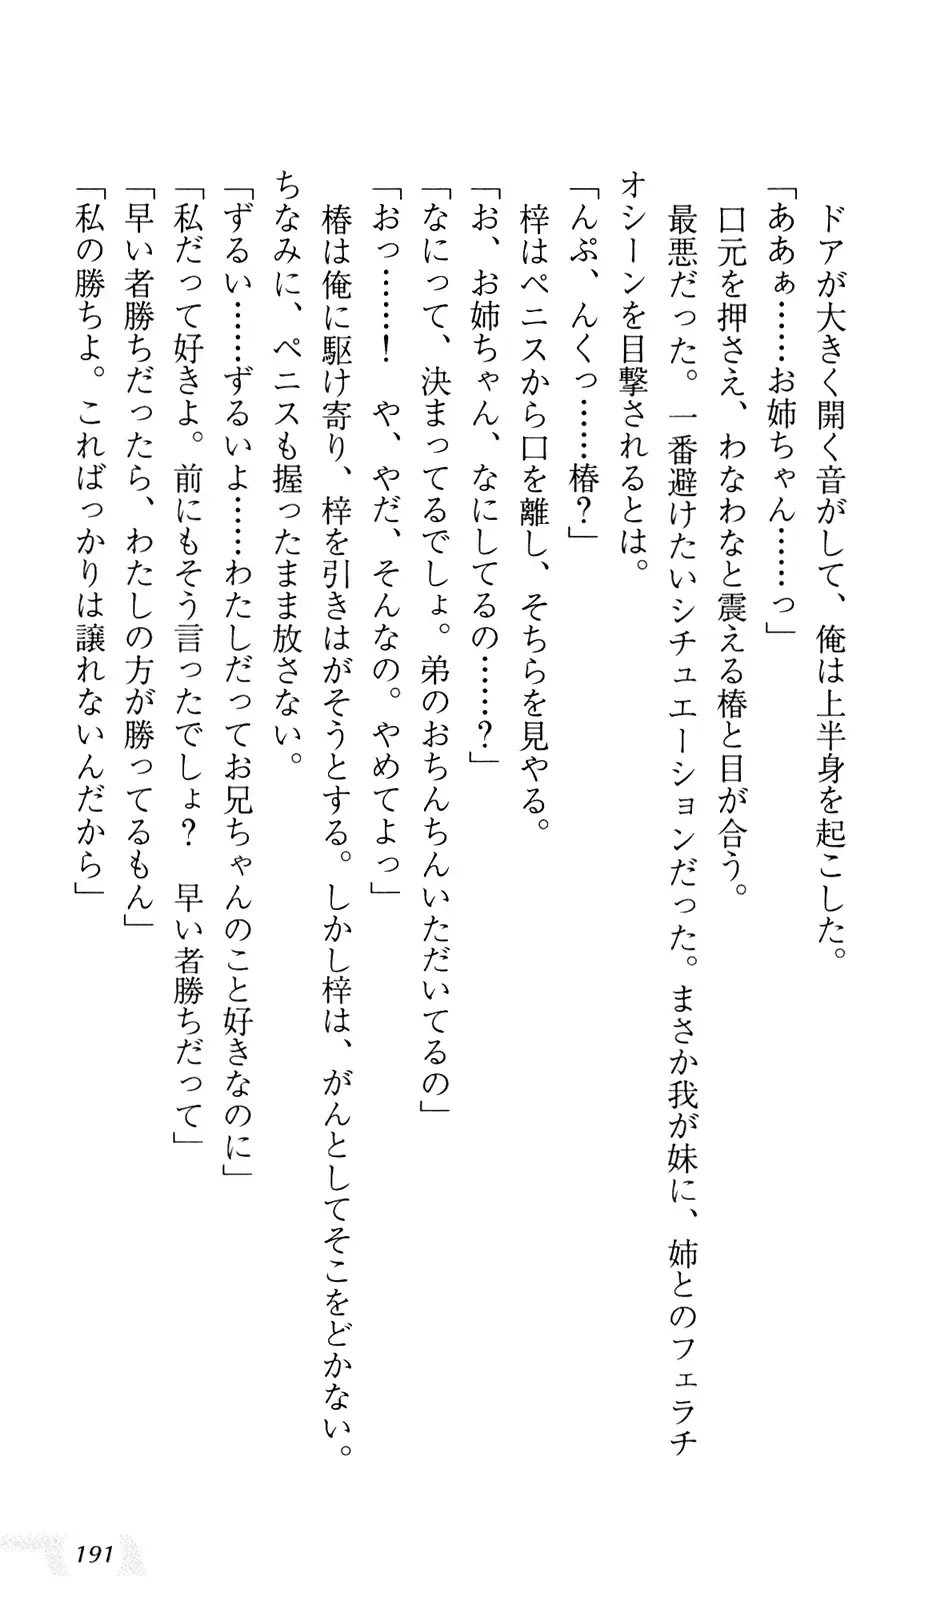 ドアが大きく開く音がして、俺は上半身を起こした。
「ああぁ……お姉ちゃん……っ」
口元を押さえ、わなわなと震える椿と目が合う。
最悪だった。一番避けたいシチュエーションだった。まさか我が妹に、姉とのフェラチ
オシーンを目撃されるとは。
「んぷ、んくっ……椿？」
梓はペニスから口を離し、そちらを見やる。
「お、お姉ちゃん、なにしてるの……？」
「なにって、決まってるでしょ。弟のおちんちんいただいてるの」
「おっ……！　や、やだ、そんなの。やめてよっ」
椿は俺に駆け寄り、梓を引きはがそうとする。しかし梓は、がんとしてそこをどかない。
ちなみに、ペニスも握ったまま放さない。
「ずるい……ずるいよ……わたしだってお兄ちゃんのこと好きなのに」
「私だって好きよ。前にもそう言ったでしょ？　早い者勝ちだって」
「早い者勝ちだったら、わたしの方が勝ってるもん」
「私の勝ちよ。こればっかりは譲れないんだから」
191